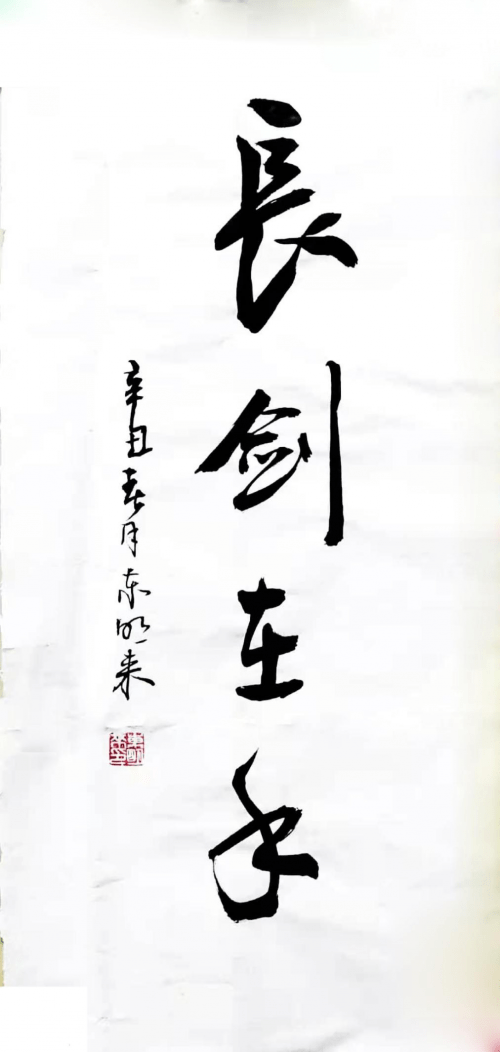 長剑在手
辛丑春月东明来